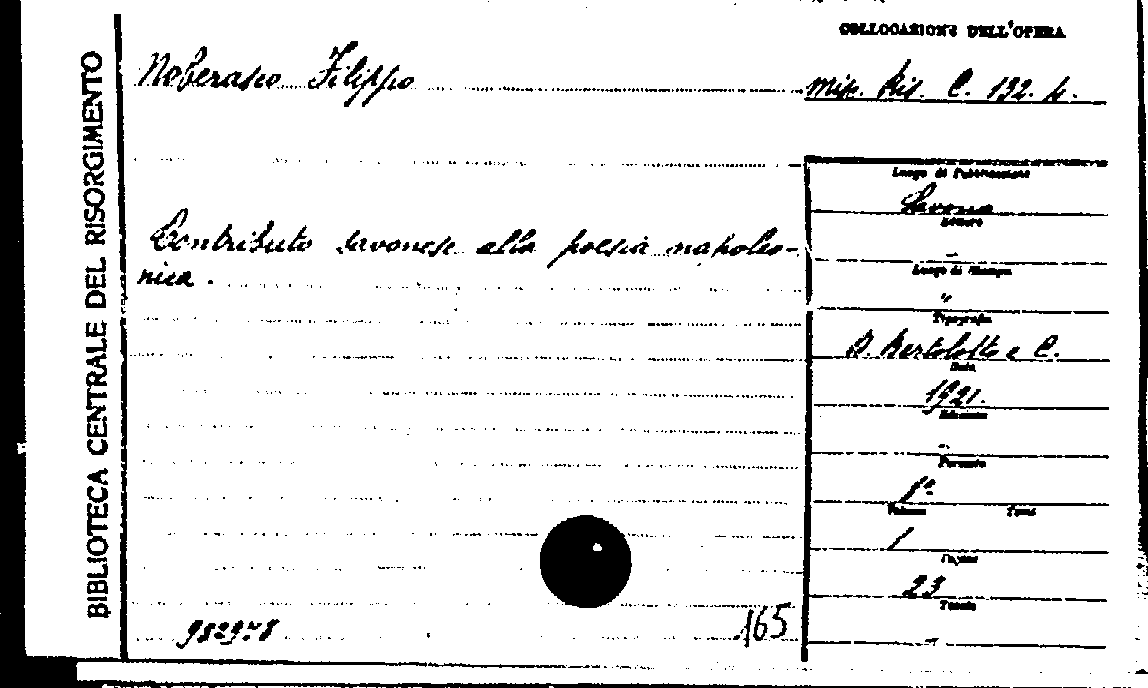 BIBLIOTECA CENTRALE DEL RISORGIMENTO
COLLOCAZIONE DELL'OPERA
Noberasco Filippo
Misc. Ris. C. 132. 4.
Contributo savonese alla poesia napoleo-
nica.
Luogo di Pubblicazione
Savona
Editore
-
Luogo di Stampa
"
Tipografia
D. Bertolotto e C.
Data
1921.
Edizione
-
Formato
8º
Volume Tomo
1
Pagine
23
Tavole
-
982978
165